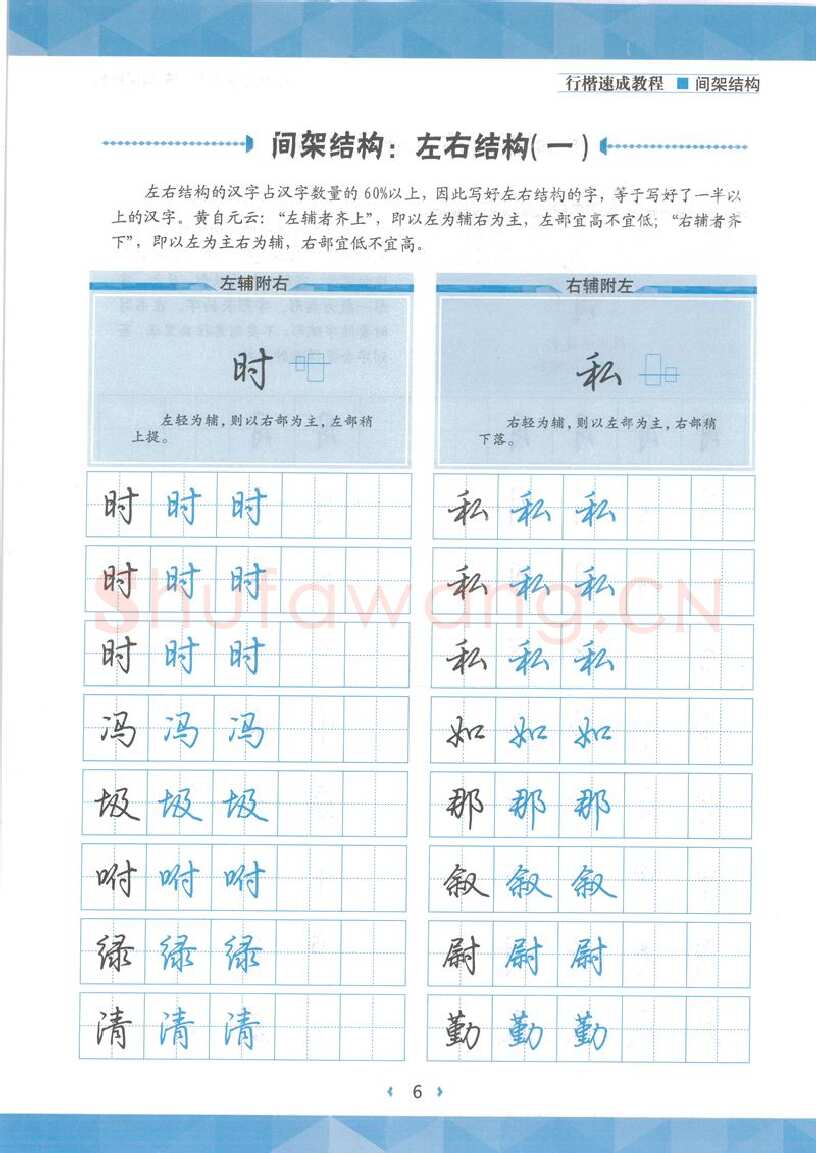 行楷速成教程 ■ 间架结构
间架结构：左右结构(一)
左右结构的汉字占汉字数量的60%以上，因此写好左右结构的字，等于写好了一半以
上的汉字。黄自元云：“左辅者齐上”，即以左为辅右为主，左部宜高不宜低；“右辅者齐
下”，即以左为主右为辅，右部宜低不宜高。
左辅附右
时
左轻为辅，则以右部为主，左部稍
上提。
时 时 时
时 时 时
时 时 时
冯 冯 冯
圾 圾 圾
咐 咐 咐
绿 绿 绿
清 清 清
右辅附左
私
右轻为辅，则以左部为主，右部稍
下落。
私 私 私
私 私 私
私 私 私
如 如 如
那 那 那
叙 叙 叙
尉 尉 尉
勤 勤 勤
Shufawang.CN
6